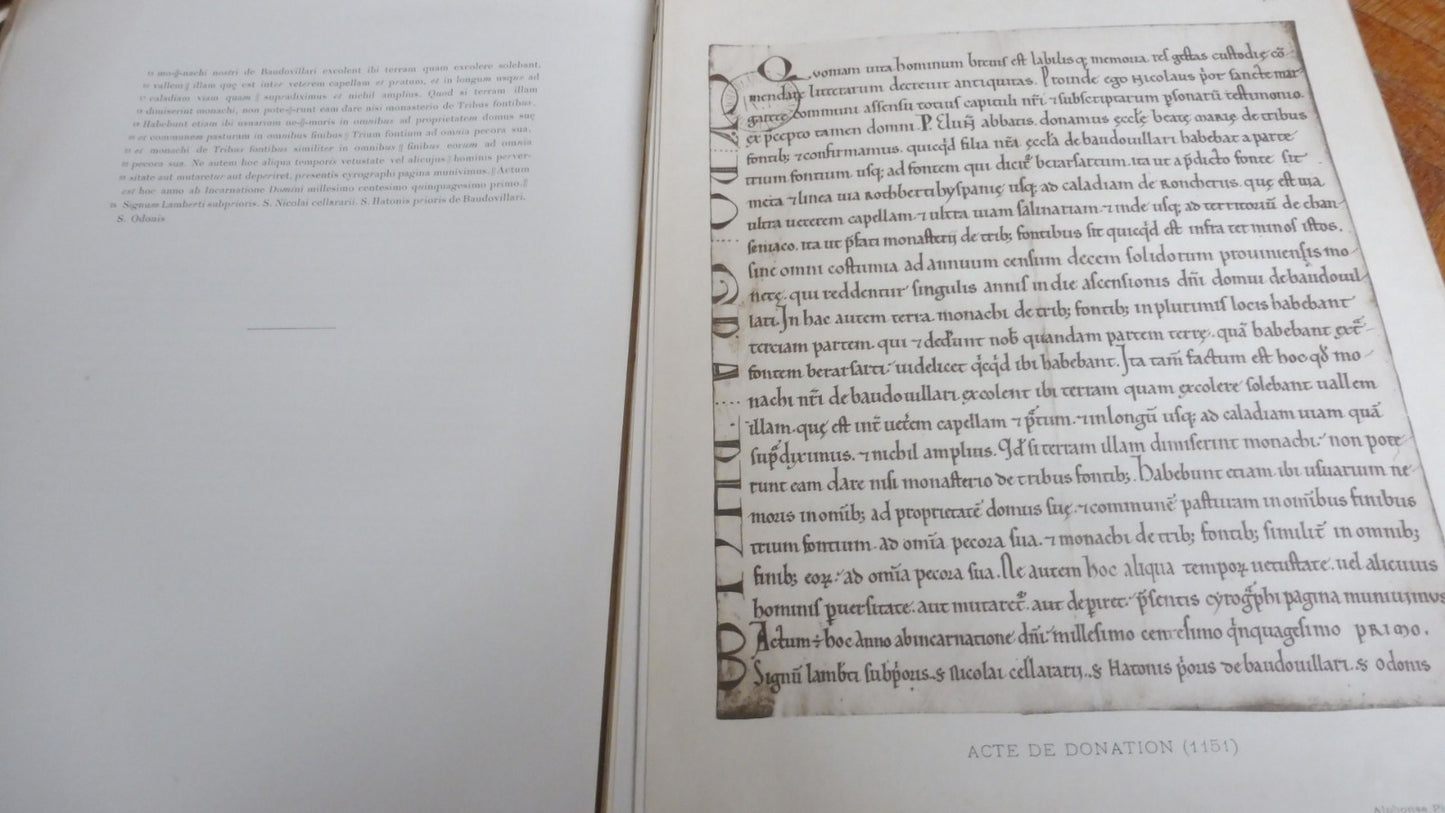 mo-||-nachi nostri de Baudovillari excolent ibi terram quam excolere solebant,
vallem || illam quę est inter veterem capellam et pratum, et in longum usque ad
caladiam viam quam || supradiximus et nichil amplius. Quod si terram illam
dimiserint monachi, non pote-||-runt eam dare nisi monasterio de Tribus fontibus.
Habebunt etiam ibi usuarium ne-||-moris in omnibus ad proprietatem domus suę
et communem pasturam in omnibus finibus || Trium fontium ad omnia pecora sua,
et monachi de Tribus fontibus similiter in omnibus || finibus eorum ad omnia
pecora sua. Ne autem hoc aliqua temporis vetustate vel alicujus || hominis perver-
sitate aut mutaretur aut deperiret, presentis cyrographi pagina munivimus. || Actum
est hoc anno ab Incarnatione Domini millesimo centesimo quinquagesimo primo. ||
Signum Lamberti subprioris. S. Nicolai cellararii. S. Hatonis prioris de Baudovillari.
S. Odonis
Qvoniam uita hominum breuis est labilisq; memoria res gestas custodię cō-
mendare litterarum decreuit antiquitas. Proinde ego Nicolaus p̄or sancte mar-
garete communi assensu totius capituli nr̄i ⁊ subscriptarum p̱sonarū testimonio.
ex p̄cepto tamen domni. P. Eluñ abbatis. donamus eccłę beatę marię de tribus
fontib; ⁊ confirmamus. quicq̇d filia nr̄a eccła de baudouillari habebat a parte
trium fontium. usq; ad fontem qui dicit᷑ berarsartum. ita ut a p̄dicto fonte sit
meta ⁊ linea uia Rothberti hyspanię usq; ad caladiam de Roncherus. quę est uia
ultra ueterem capellam. ⁊ ultra uiam salinariam. ⁊ inde usq; ad territoriū de chan
seniaco. ita ut p̄fati monasterij de trib; fontibus sit quicq̇d est infra terminos istos.
sine omni costumia ad annuum censum decem solidorum prouiniensis mo-
netę. qui reddentur singulis annis in die ascensionis dñi domui de baudouil
lari. In hac autem terra. monachi de trib; fontib; in plurimis locis habebant
terciam partem. qui ⁊ ded̾unt nob̄ quandam partem terrę. quā habebant ext͛-
fontem berarsarti. uidelicet q̇cq̇d ibi habebant. Ita tam̄ factum est hoc qd̄ mo-
nachi nr̄i de baudouillari excolent ibi terram quam excolere solebant uallem
illam. quę est int̄ uet̾em capellam ⁊ p͛tum. ⁊ in longū usq; ad caladiam uiam quā
sup͛diximus. ⁊ nichil amplius. Qd̄ si terram illam dimiserint monachi. non pote-
runt eam dare nisi monasterio de tribus fontib;. Habebunt etiam ibi usuarium ne-
moris in om̄ib; ad proprietatē domus suę. ⁊ communē pasturam in om̄ibus finibus
trium fontium. ad om̄ia pecora sua. ⁊ monachi de trib; fontib; similit̄ in omnib;
finib; eoꝝ. ad om̄ia pecora sua. Ne autem hoc aliqua tempoꝝ uetustate. uel alicuius
hominis p̱uersitate. aut mutaret᷑. aut dep̱iret. p̄sentis cyrog͛phi pagina muniuimus
Actum ÷ hoc Anno ab incarnatione dñi. millesimo centesimo q̇nquagesimo PRIMO.
Signū lamb̄ti subp̄oris. S Nicolai cellararij. S Hatonis p̄oris de baudouillari. S Odonis
ACTE DE DONATION (1151)